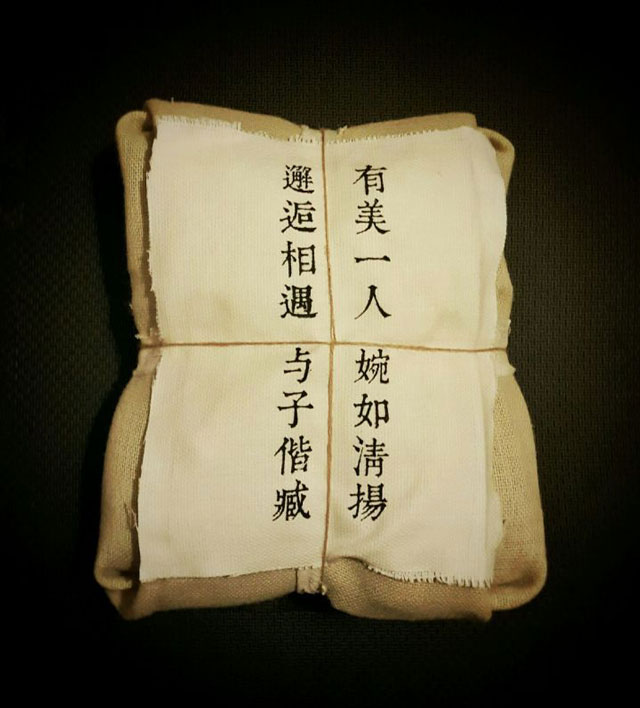 有美一人 婉如清揚
邂逅相遇 与子偕臧